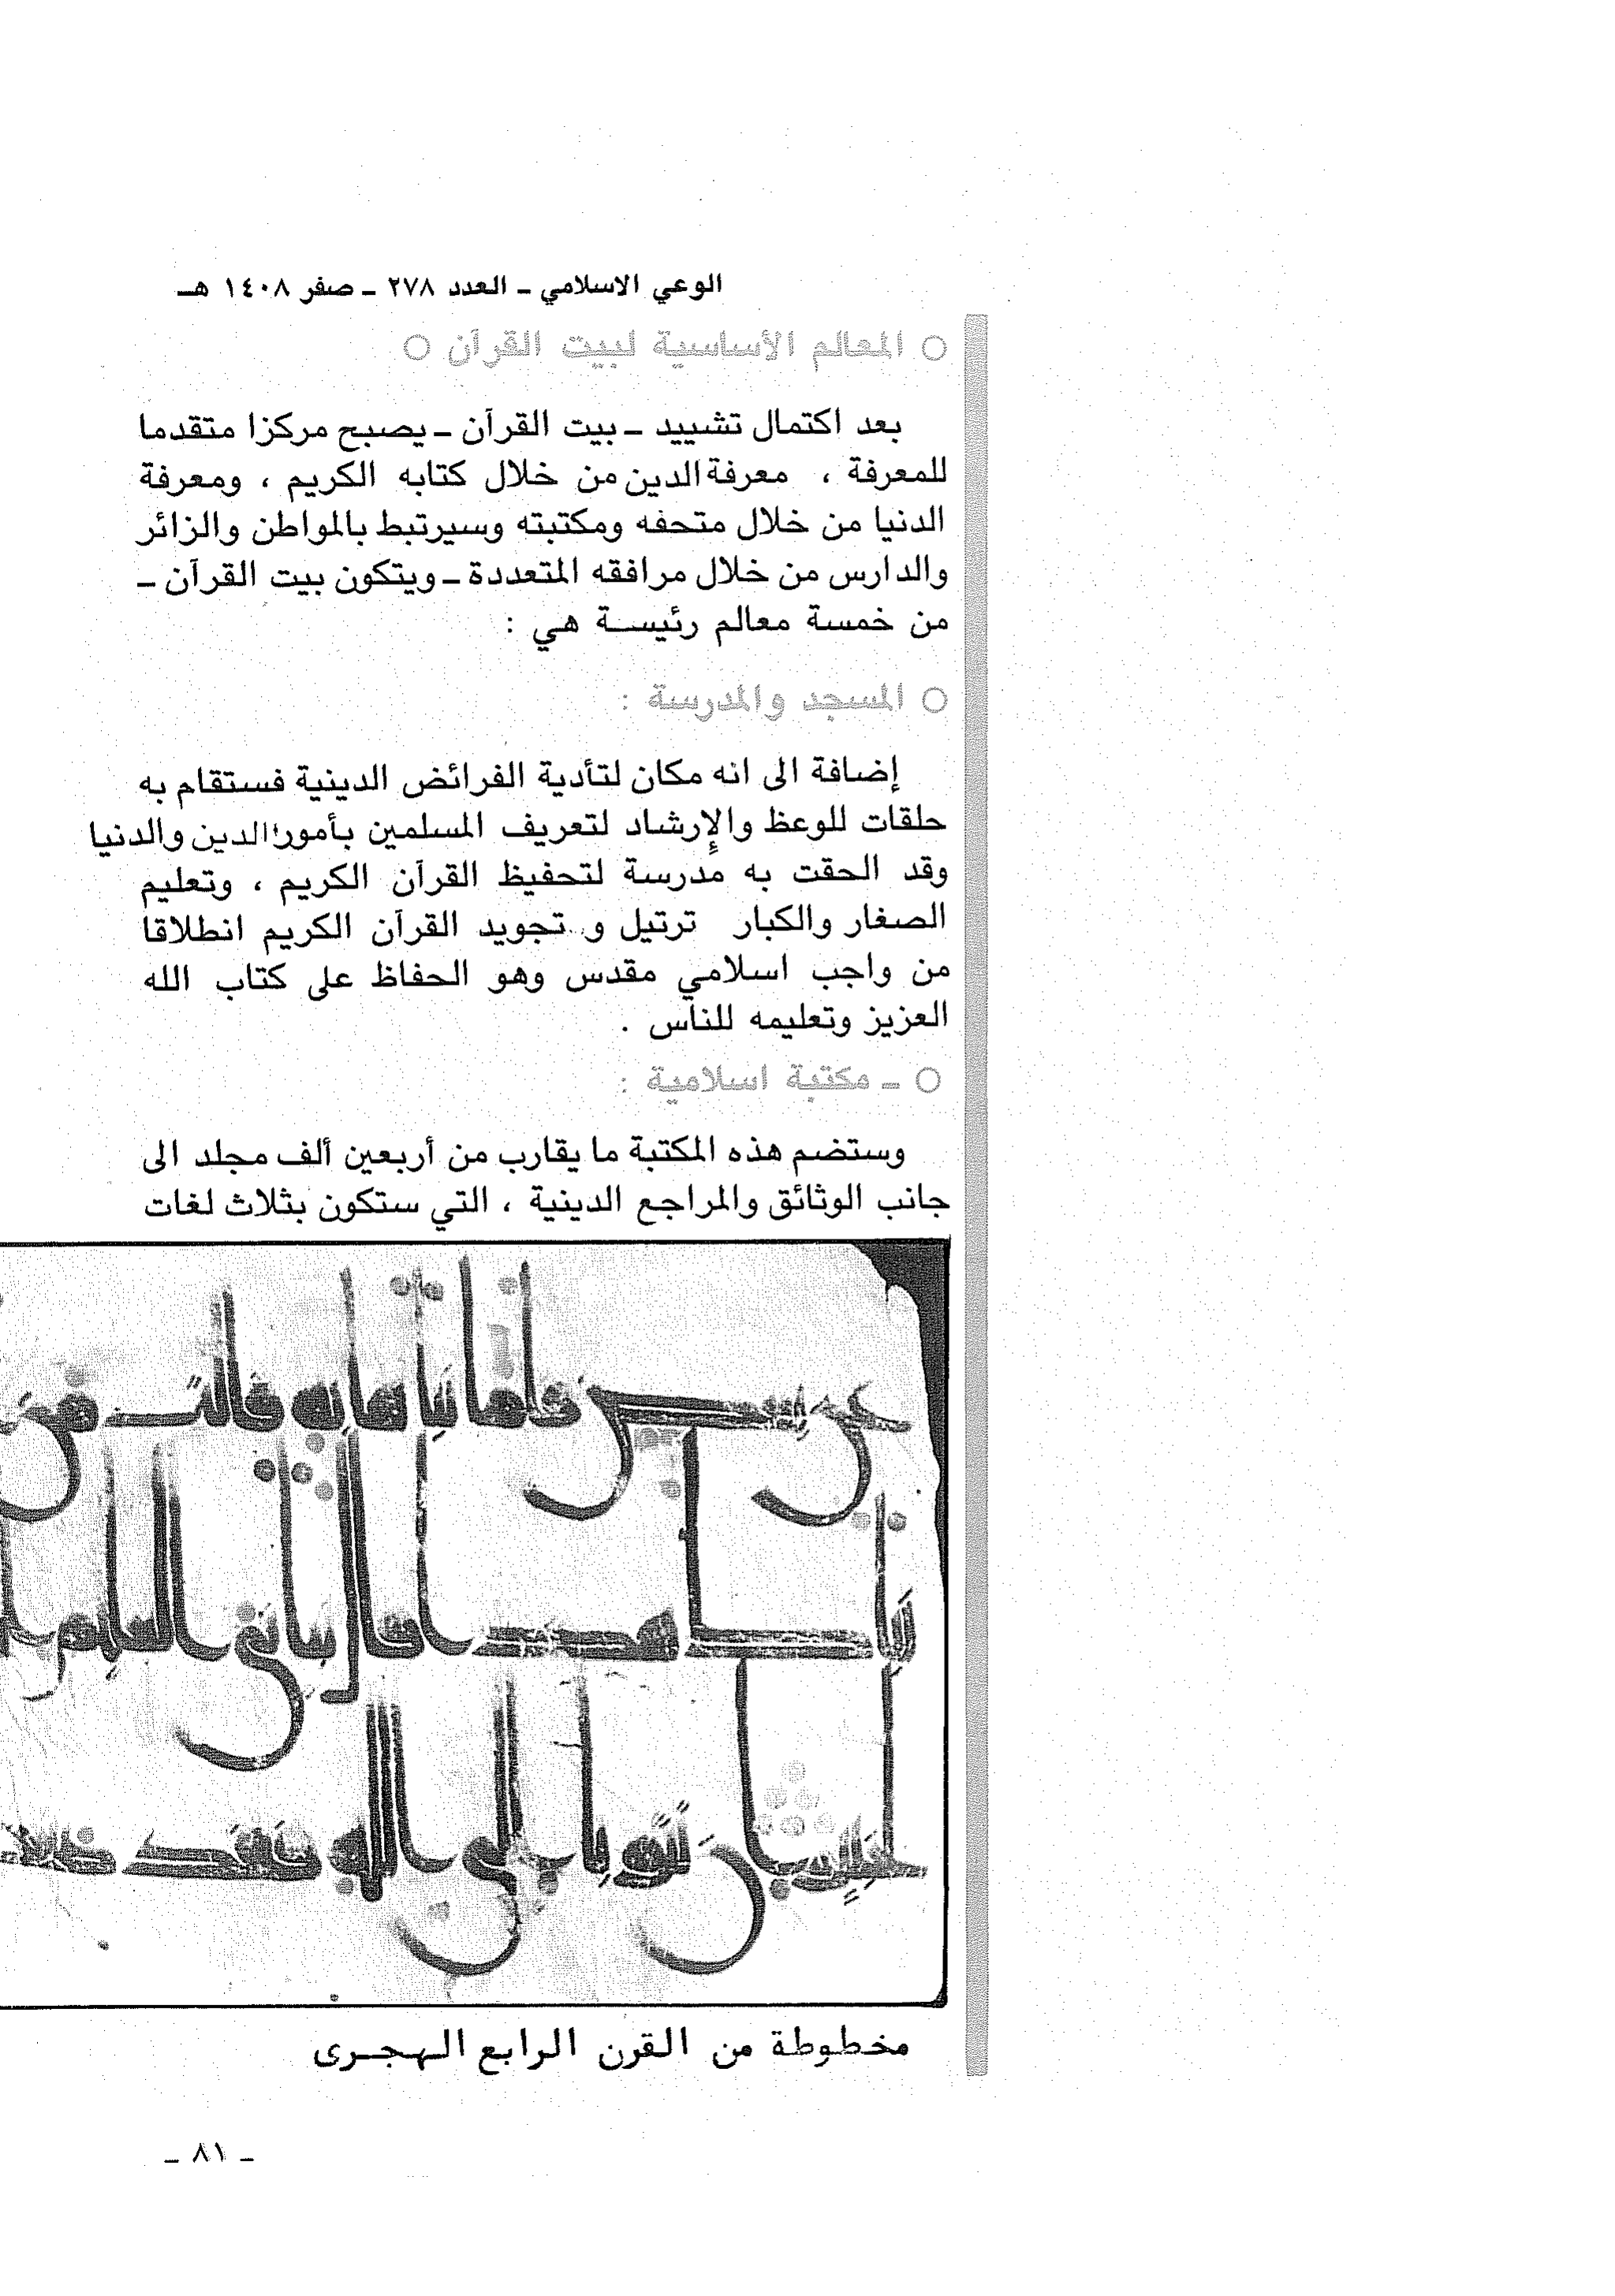 الوعي الاسلامي ـ العدد ٢٧٨ ـ صفر ١٤٠٨ هـ
○ المعالم الأساسية لبيت القرآن ○
بعد اكتمال تشييد ـ بيت القرآن ـ يصبح مركزا متقدما
للمعرفة ، معرفة الدين من خلال كتابه الكريم ، ومعرفة
الدنيا من خلال متحفه ومكتبته وسيرتبط بالمواطن والزائر
والدارس من خلال مرافقه المتعددة ـ ويتكون بيت القرآن ـ
من خمسة معالم رئيسة هي :
○ المسجد والمدرسة :
إضافة الى انه مكان لتأدية الفرائض الدينية فستقام به
حلقات للوعظ والإرشاد لتعريف المسلمين بأمور الدين والدنيا
وقد الحقت به مدرسة لتحفيظ القرآن الكريم ، وتعليم
الصغار والكبار ترتيل و تجويد القرآن الكريم انطلاقا
من واجب اسلامي مقدس وهو الحفاظ على كتاب الله
العزيز وتعليمه للناس .
○ ـ مكتبة اسلامية :
وستضم هذه المكتبة ما يقارب من أربعين ألف مجلد الى
جانب الوثائق والمراجع الدينية ، التي ستكون بثلاث لغات
مخطوطة من القرن الرابع الهجرى
ـ ٨١ ـ